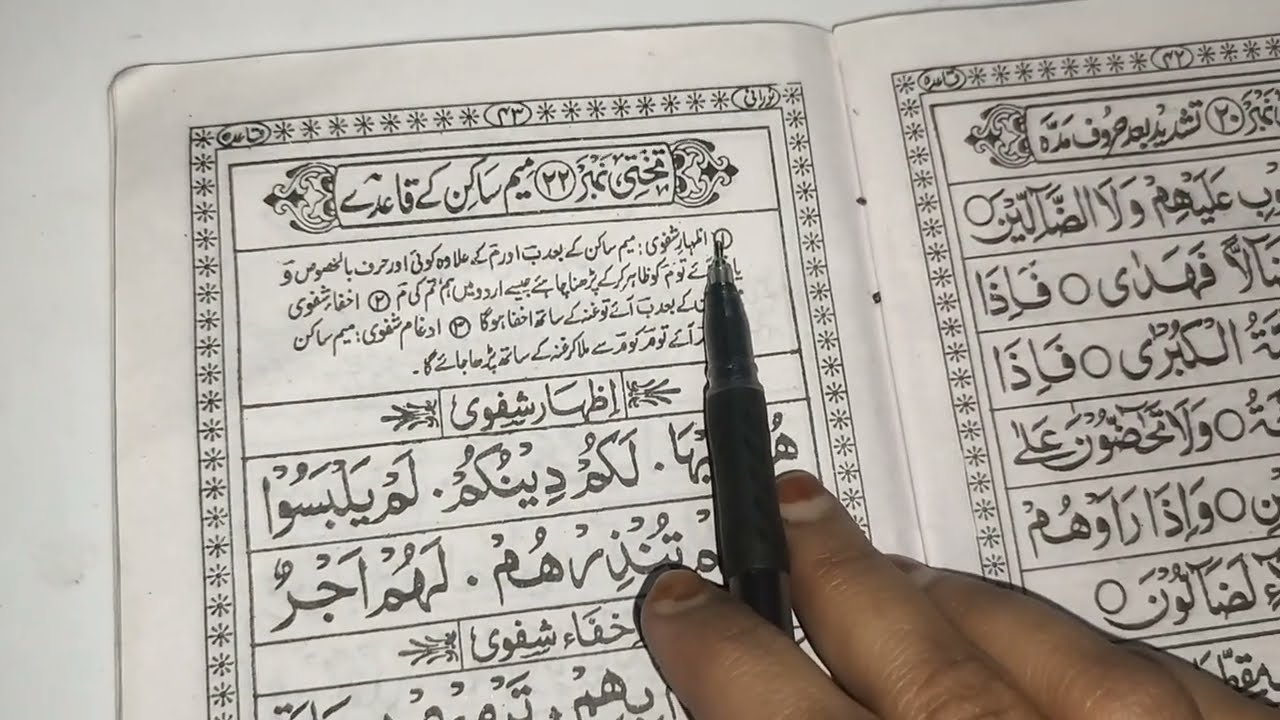 نورانی ۴۳ قاعدہ
تختی نمبر ۲۲ میم ساکن کے قاعدے
① اظہار شفوی: میم ساکن کے بعد ب اور م کے علاوہ کوئی اور حرف بالخصوص و
یا آئے تو م کو ظاہر کر کے پڑھنا چاہئے جیسے اردو میں ہم تم کی م ② اخفاء شفوی
کے بعد ب آئے تو غنہ کے ساتھ اخفا ہوگا ③ ادغام شفوی: میم ساکن
آئے تو م کو م سے ملا کر غنہ کے ساتھ پڑھا جائے گا۔
اِظہار شِفوی
لَكُمْ دِيْنُكُمْ. لَمْ يَلْبَسُوْا
تُنْذِرْهُمْ. لَهُمْ اَجْرٌ
اخفاء شِفوی
بِهِمْ.
۴۲ قاعدہ
نمبر ۲۰ تشدید بعد حروف مدّہ
عَلَيْهِمْ وَلَا الضَّآلِّيْنَ ○
ضَآلًّا فَهَدٰى ○ فَاِذَا
الْكُبْرٰى ○ فَاِذَا
○ وَلَا تَحٰٓضُّوْنَ عَلٰى
○ وَاِذَا رَاَوْهُمْ
لَضَآلُّوْنَ ○